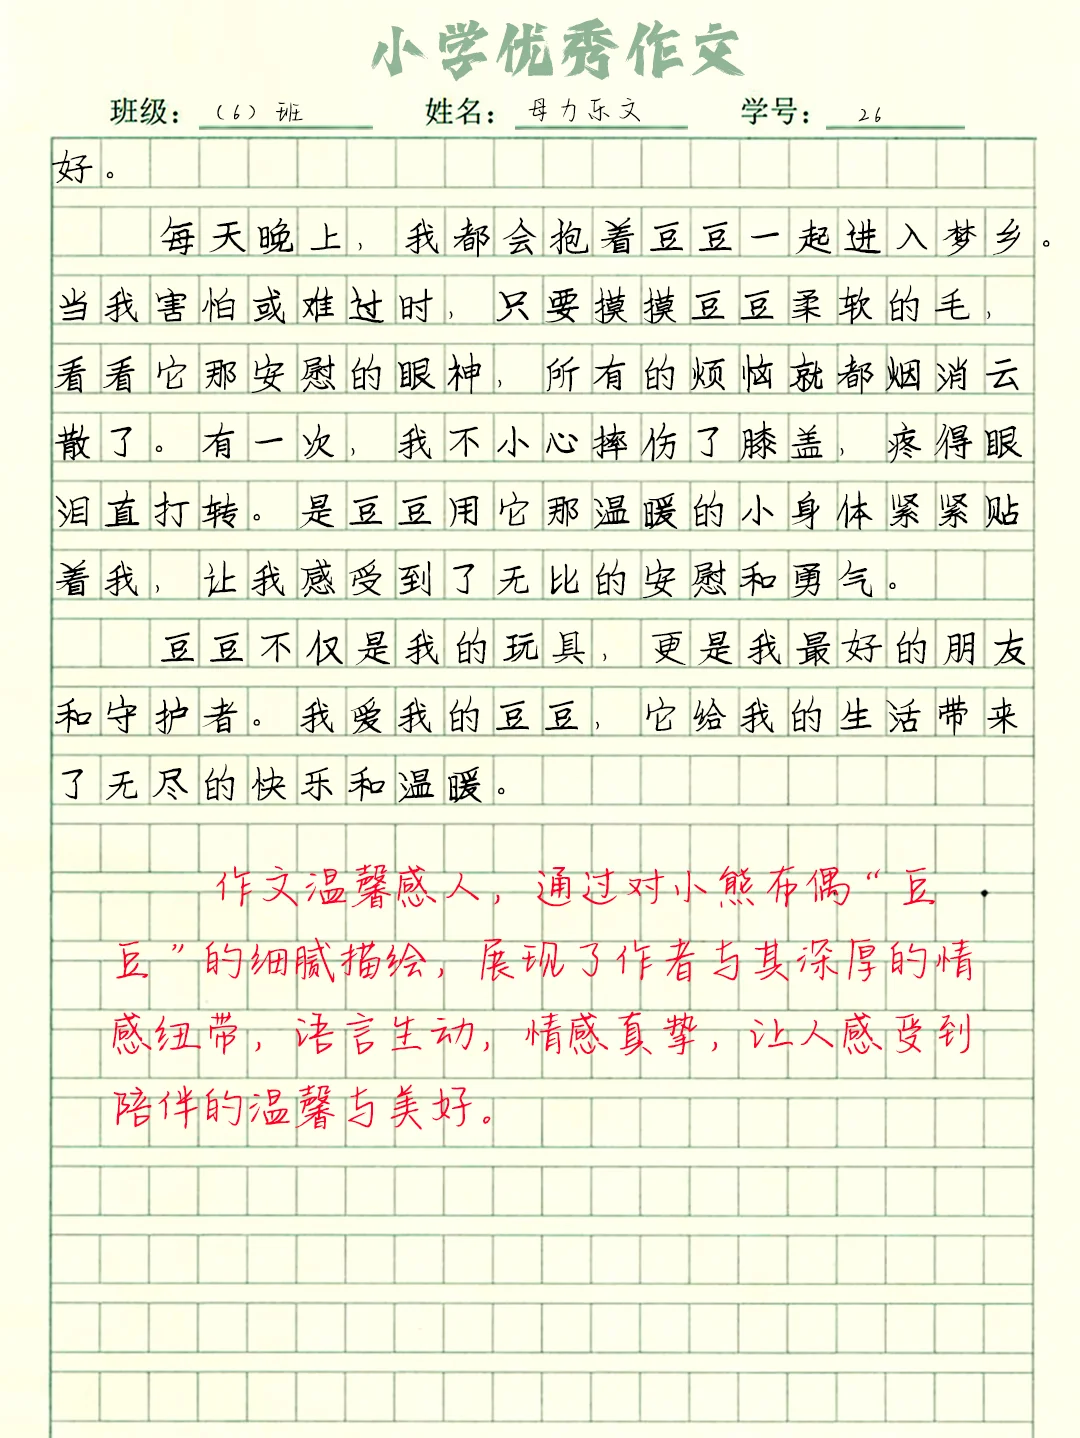 小学优秀作文
班级：（6）班 姓名：母力乐文 学号：26
好。
每天晚上，我都会抱着豆豆一起进入梦乡。
当我害怕或难过时，只要摸摸豆豆柔软的毛，
看看它那安慰的眼神，所有的烦恼就都烟消云
散了。有一次，我不小心摔伤了膝盖，疼得眼
泪直打转。是豆豆用它那温暖的小身体紧紧贴
着我，让我感受到了无比的安慰和勇气。
豆豆不仅是我的玩具，更是我最好的朋友
和守护者。我爱我的豆豆，它给我的生活带来
了无尽的快乐和温暖。
作文温馨感人，通过对小熊布偶“豆
豆”的细腻描绘，展现了作者与其深厚的情
感纽带，语言生动，情感真挚，让人感受到
陪伴的温馨与美好。